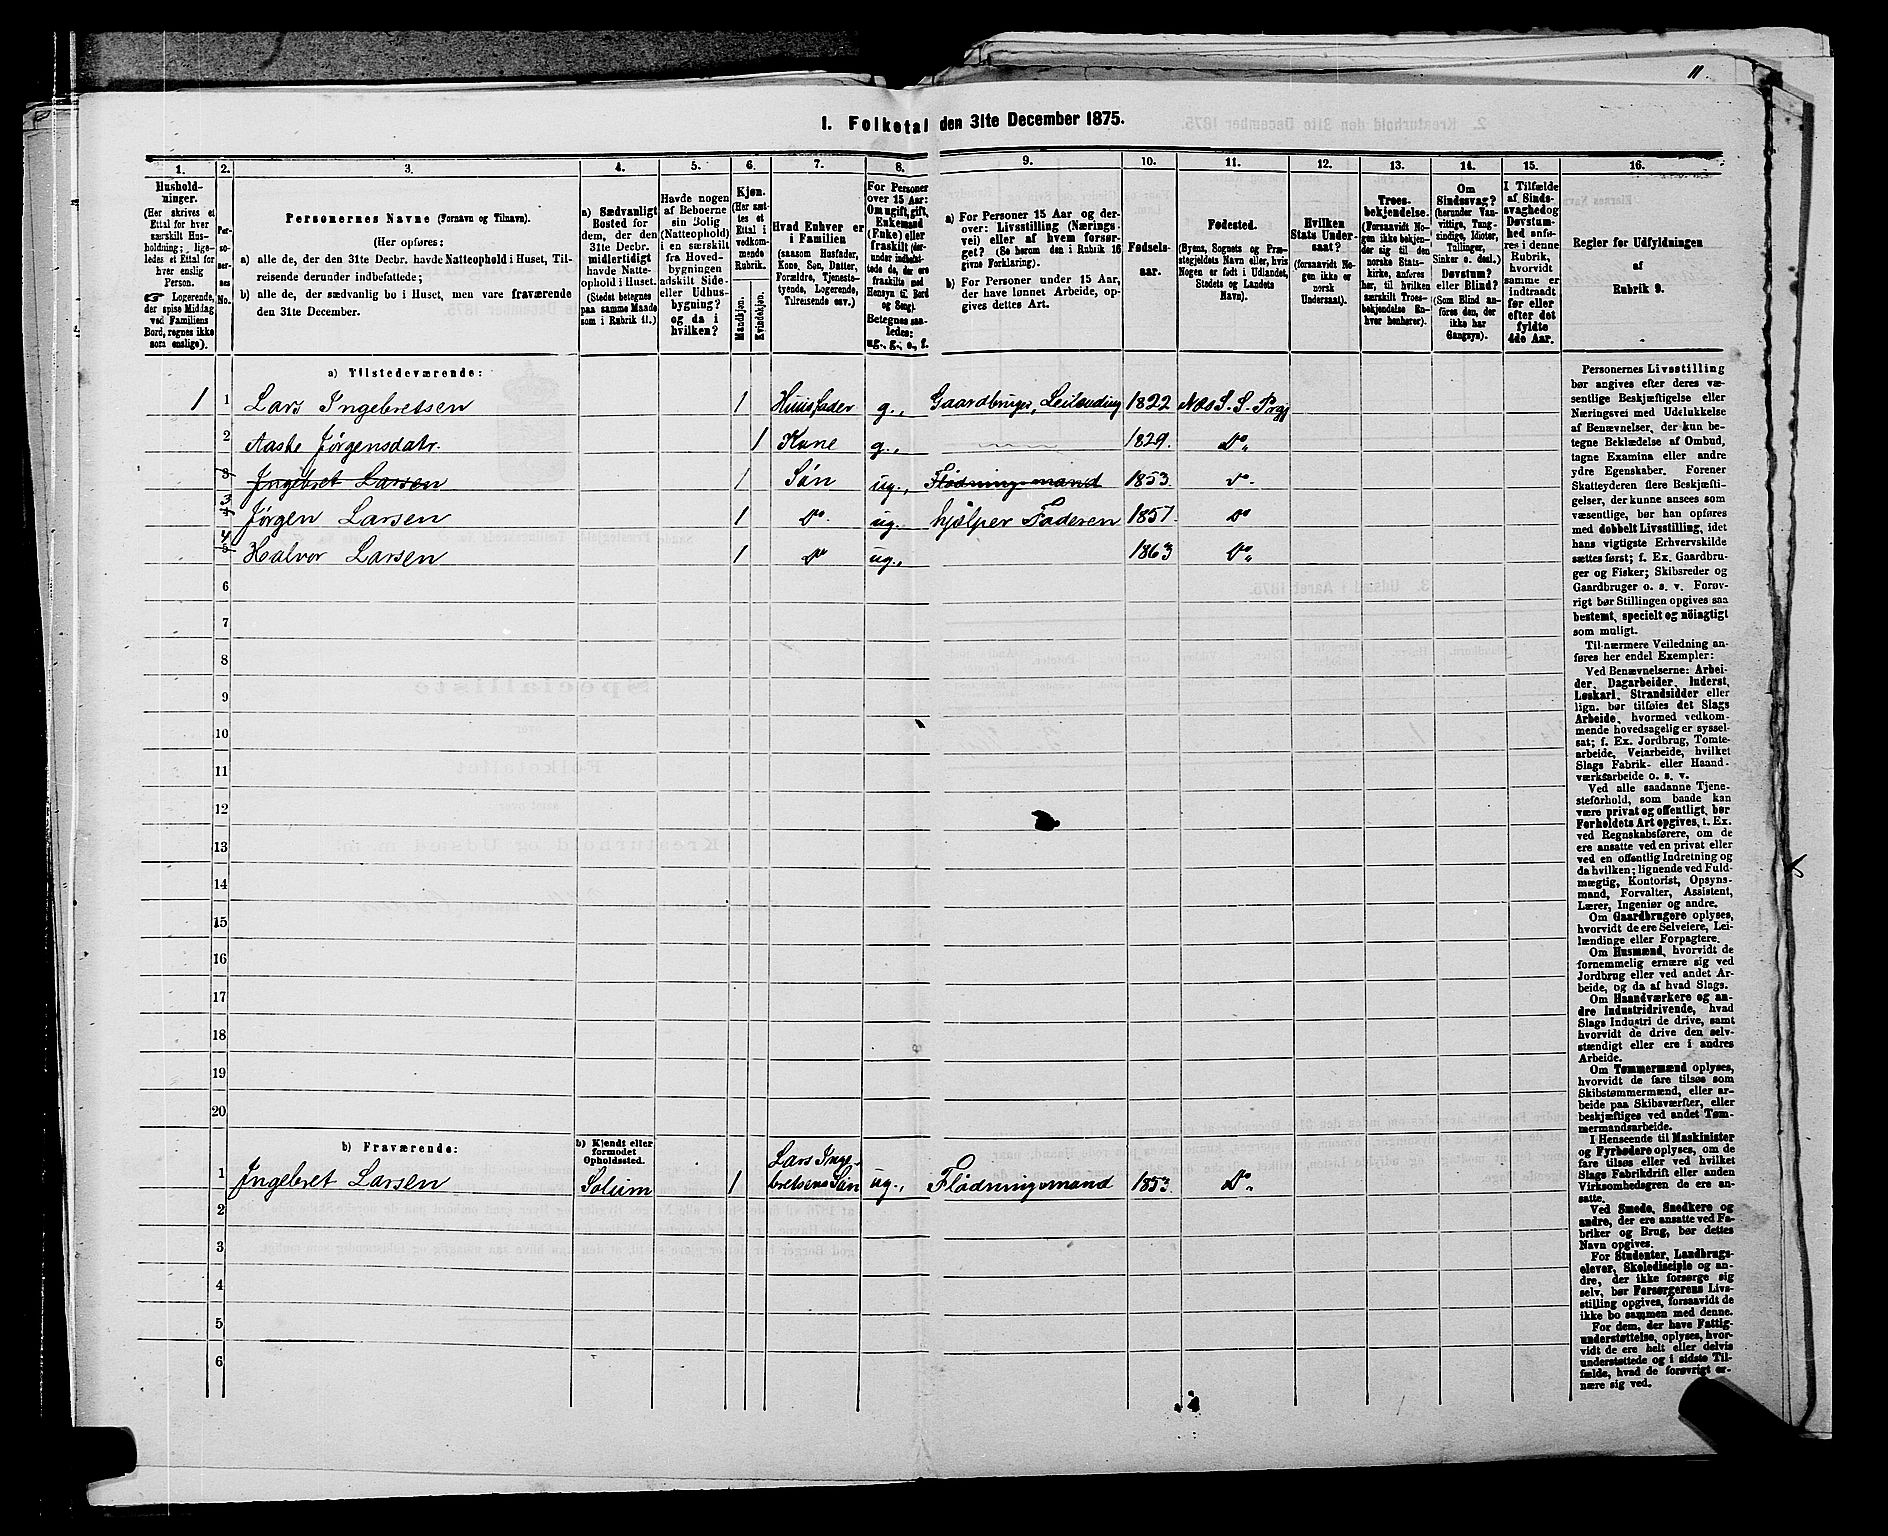 11
1. Folketal den 31te December 1875.
1. 2. 3. 4. 5. 6. 7. 8. 9. 10. 11. 12. 13. 14. 15. 16.
Hushold-
ninger.
(Her skrives et
Ettal for hver
særskilt Hus-
holdning; lige-
ledes et Ettal for
hver enslig
Person.
☞ Logerende,
der spise Middag
ved Familiens
Bord, regnes ikke
som enslige).
Per-
so-
ner-
nes
No.
Personernes Navne (Fornavn og Tilnavn).
(Her opføres:
a) alle de, der den 31te Decbr. havde Natteophold i Huset, Til-
reisende derunder indbefattede;
b) alle de, der sædvanlig bo i Huset, men vare fraværende
den 31te December.
a) Sædvanligt
Bosted for
dem, der den
31te Decbr.
midlertidigt
havde Natte-
ophold i Huset.
(Stedet betegnes
paa samme Maade
som i Rubrik 11.)
Havde nogen
af Beboerne
sin Bolig
(Natteophold)
i en særskilt
fra Hoved-
bygningen
adskilt Side-
eller Udhus-
bygning?
og da i
hvilken?
Kjøn.
(Her sæt-
tes et
Ettal i
vedkom-
mende
Rubrik.
Mandkjøn.
Kvindekjøn.
Hvad Enhver er
i Familien
(saasom Husfader,
Kone, Søn, Datter,
Forældre, Tjeneste-
tyende, Logerende,
Tilreisende osv.)
For Personer
over 15 Aar:
Om ugift, gift,
Enkemand
(Enke) eller
fraskilt (der-
under indbefat-
tede de, der ere
fraskilte med
Hensyn til Bord
og Seng).
Betegnes saa-
ledes:
ug., g., e., f.
a) For Personer 15 Aar og der-
over: Livsstilling (Nærings-
vei) eller af hvem forsør-
get? (Se herom den i Rubrik 16
givne Forklaring).
b) For Personer under 15 Aar,
der have lønnet Arbeide, op-
gives dettes Art.
Fødsels-
aar.
Fødested.
(Byens, Sognets og Præ-
stegjeldets Navn eller, hvis
Nogen er født i Udlandet,
Stedets og Landets
Navn).
Hvilken
Stats Under-
saat?
(forsaavidt No-
gen ikke er
norsk
Undersaat).
Troes-
bekjendelse.
(Forsaavidt No-
gen ikke bekjen-
der sig til den
norske Stats-
kirke, anføres
her, til hvilken
særskilt Troes-
bekjendelse En-
hver henhører).
Om
Sindssvag?
(herunder Van-
vittige, Tung-
sindige, Idioter,
Tullinger,
Sinker o. desl.)
Døvstum?
eller Blind?
(Som Blind an-
føres den, der
ikke har
Gangsyn).
I Tilfælde
af Sinds-
svaghed og
Døvstum-
hed anfø-
res i denne
Rubrik,
hvorvidt
samme er
indtraadt
før eller
efter det
fyldte
4de Aar.
Regler for Udfyldningen
af
Rubrik 9.
a) Tilstedeværende:
1 1 Lars Ingebretsen 1 Huusfader g., Gaardbruger, Leilænding 1822 Næs S. S. Prgj
2 Aaste Jørgensdatr. 1 Kone g., 1829. Do.
3 Ingebret Larsen 1 Søn ug., Flødningsmand 1853 Do.
3 4 Jørgen Larsen 1 Do. ug. hjelper Faderen 1857. Do
4 5 Halvor Larsen 1 Do ug., 1863 Do.
6
7
8
9
10
11
12
13
14
15
16
17
18
19
20
b) Fraværende:
b) Kjendt eller
formodet
Opholdssted.
1 Ingebret Larsen Solum 1 Lars Inge-
bretsens Søn ug., Flødningsmand 1853. Do.
2
3
4
5
6
Personernes Livsstilling
bør angives efter deres væ-
sentlige Beskjæftigelse eller
Næringsvei med Udelukkelse
af Benævnelser, der kun be-
tegne Beklædelse af Ombud,
tagne Examina eller andre
ydre Egenskaber. Forener
Skatteyderen flere Beskjæfti-
gelser, der kunne ansees som
væsentlige, bør han opføres
med dobbelt Livsstilling, idet
hans vigtigste Erhvervskilde
sættes først; f. Ex. Gaardbru-
ger og Fisker; Skibsreder og
Gaardbruger o. s. v. Forøv-
rigt bør Stillingen opgives saa
bestemt, specielt og nöiagtigt
som muligt.
Til nærmere Veiledning an-
føres her endel Exempler:
Ved Benævnelserne: Arbei-
der, Dagarbeider, Inderst,
Løskarl, Strandsidder eller
lign. bør tilføies det Slags
Arbeide, hvormed vedkom-
mende hovedsagelig er syssel-
sat; f. Ex. Jordbrug, Tomte-
arbeide, Veiarbeide, hvilket
Slags Fabrik- eller Haand-
værksarbeide o. s. v.
Ved alle saadanne Tjene-
steforhold, som baade kan
være privat og offentligt, bør
Forholdets Art opgives, t. Ex.
ved Regnskabsførere, om de
ere ansatte ved en privat eller
ved en offentlig Indretning og
da hvilken; lignende ved Fuld-
mægtig, Kontorist, Opsyns-
mand, Forvalter, Assistent,
Lærer, Ingeniør og andre.
Om Gaardbrugere oplyses,
hvorvidt de ere Selveiere, Lei-
lændinge eller Forpagtere.
Om Husmænd, hvorvidt de
fornemmelig ernære sig ved
Jordbrug eller ved andet Ar-
beide, og da af hvad Slags.
Om Haandværkere og an-
dre Industridrivende, hvad
Slags Industri de drive, samt
hvorvidt de drive den selv-
stændigt eller ere i andres
Arbeide.
Om Tømmermænd oplyses,
hvorvidt de fare tilsøs som
Skibstømmermænd, eller ar-
beide paa Skibsværfter, eller
beskjæftiges ved andet Tøm-
mermandsarbeide.
I Henseende til Maskinister
og Fyrbødere oplyses, om de
fare tilsøs eller ved hvilket
Slags Fabrikdrift eller anden
Virksomhedsgren de ere an-
satte.
Ved Smede, Snedkere og
andre, der ere ansatte ved Fa-
briker og Brug, bør dettes
Navn opgives.
For Studenter, Landbrugs-
elever, Skoledisciple og an-
dre, der ikke forsørge sig
selv, bør Forsørgerens Livs-
stilling opgives, forsaavidt de
ikke bo sammen med denne.
For dem, der have Fattig-
understøttelse, oplyses, hvor-
vidt de ere helt eller delvis
understøttede og i sidste Til-
fælde, hvad de forøvrigt er-
nære sig ved.